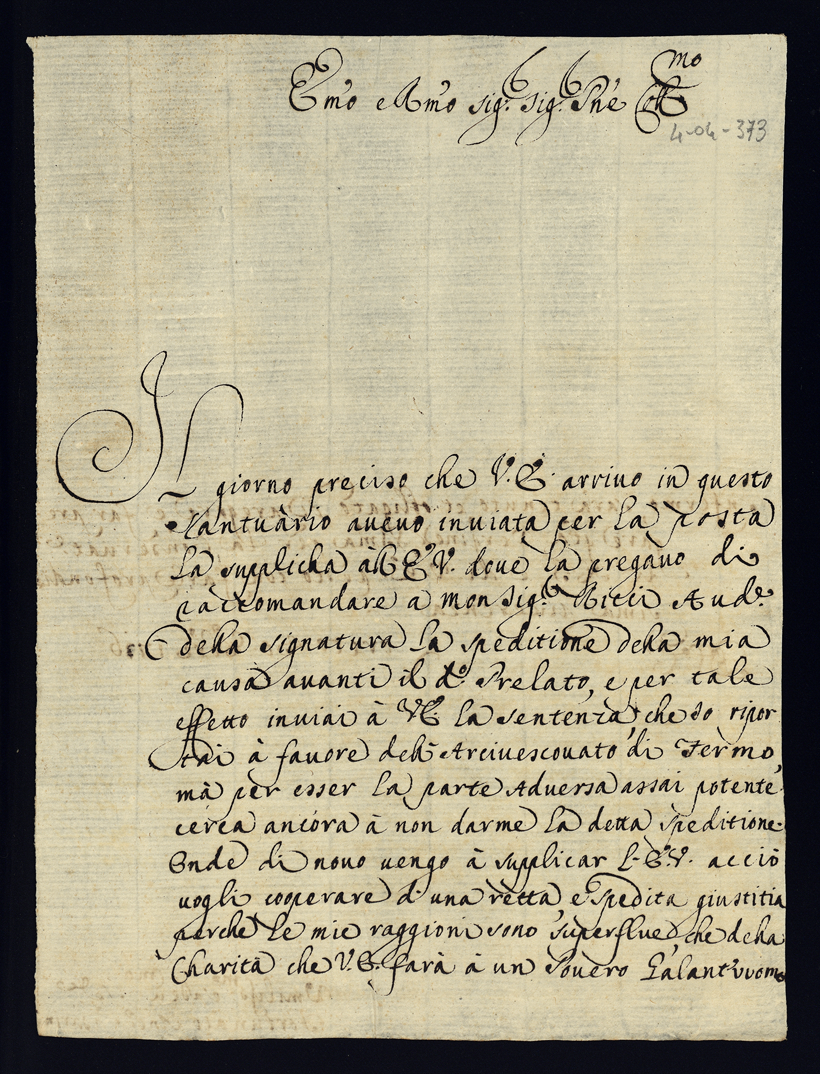 Em̃o e Rm̃o Sig.r Sig.r Pñe Col.mo
4-04-373
Il giorno preciso che V.E. arrivo in questo
Santuàrio avevo inviata per la posta
La supplicha àll'E.V. dove la pregavo di
raccomandare a monSig.r Ricci Aud.e
della signatura la speditione della mia
causa avanti il d.o Prelato, e per tale
effetto inviai à VE la sentenza, che Io ripor
tai à favore dell'Arcivescovato di Fermo,
mà per esser la parte Adversa assai potente
cerca ancora à non darme la detta speditione
Onde di novo vengo à supplicar l'E.V. acciò
vogli cooperare d'una retta e spedita giustitia
perche le mie raggioni sono superflue, che della
Charità che V.E. farà à un Povero Galant'vuomo